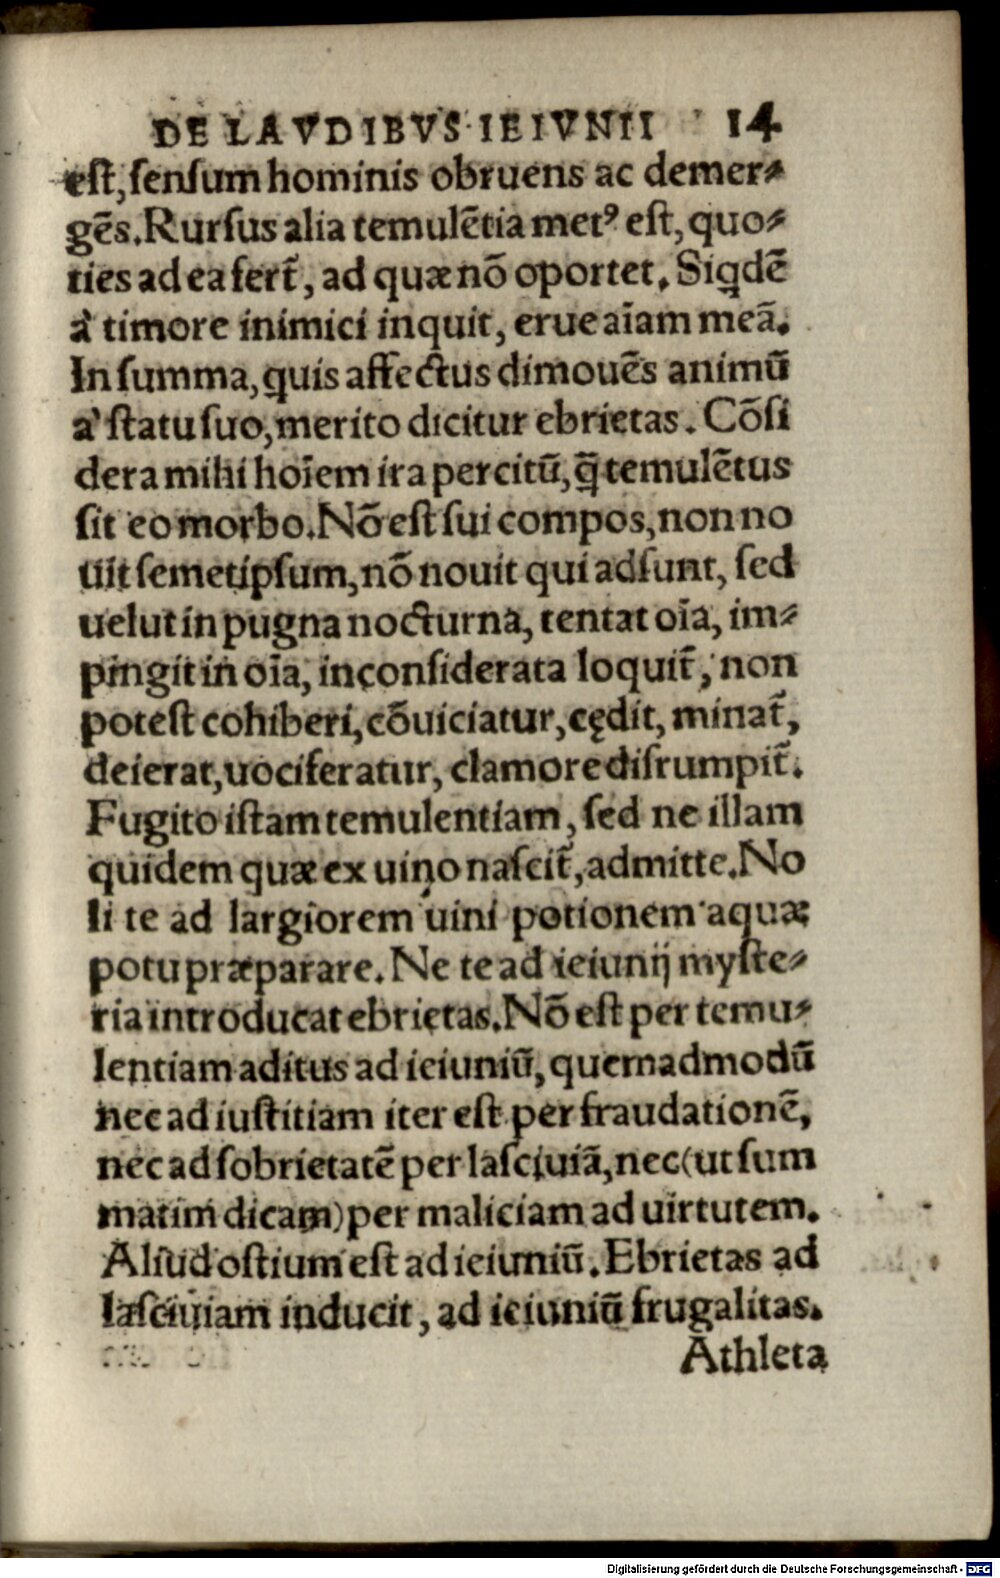 DE LAVDIBVS IEIVNII 14
est, sensum hominis obruens ac demer-
gēs. Rursus alia temulētia metꝰ est, quo-
ties ad ea fert̄, ad quæ nō oportet. Siqdē
à timore inimici inquit, erue aīam meā.
In summa, quis affectus dimouēs animū
à statu suo, merito dicitur ebrietas. Cōsi
dera mihi hoīem ira percitū, q̄ temulētus
sit eo morbo. Nō est sui compos, non no
uit semetipsum, nō nouit qui adsunt, sed
uelut in pugna nocturna, tentat oīa, im-
pingit in oīa, inconsiderata loquit̄, non
potest cohiberi, cōuiciatur, cędit, minat̄,
deierat, uociferatur, clamore disrumpit̄.
Fugito istam temulentiam, sed ne illam
quidem quæ ex uino nascit̄, admitte. No
li te ad largiorem uini potionem aquæ
potu præparare. Ne te ad ieiunij myste-
ria introducat ebrietas. Nō est per temu-
lentiam aditus ad ieiuniū, quemadmodū
nec ad iustitiam iter est per fraudationē,
nec ad sobrietatē per lasciuiā, nec (ut sum
matim dicam) per maliciam ad uirtutem.
Aliud ostium est ad ieiuniū. Ebrietas ad
lasciuiam inducit, ad ieiuniū frugalitas.
Athleta
Digitalisierung gefördert durch die Deutsche Forschungsgemeinschaft - DFG